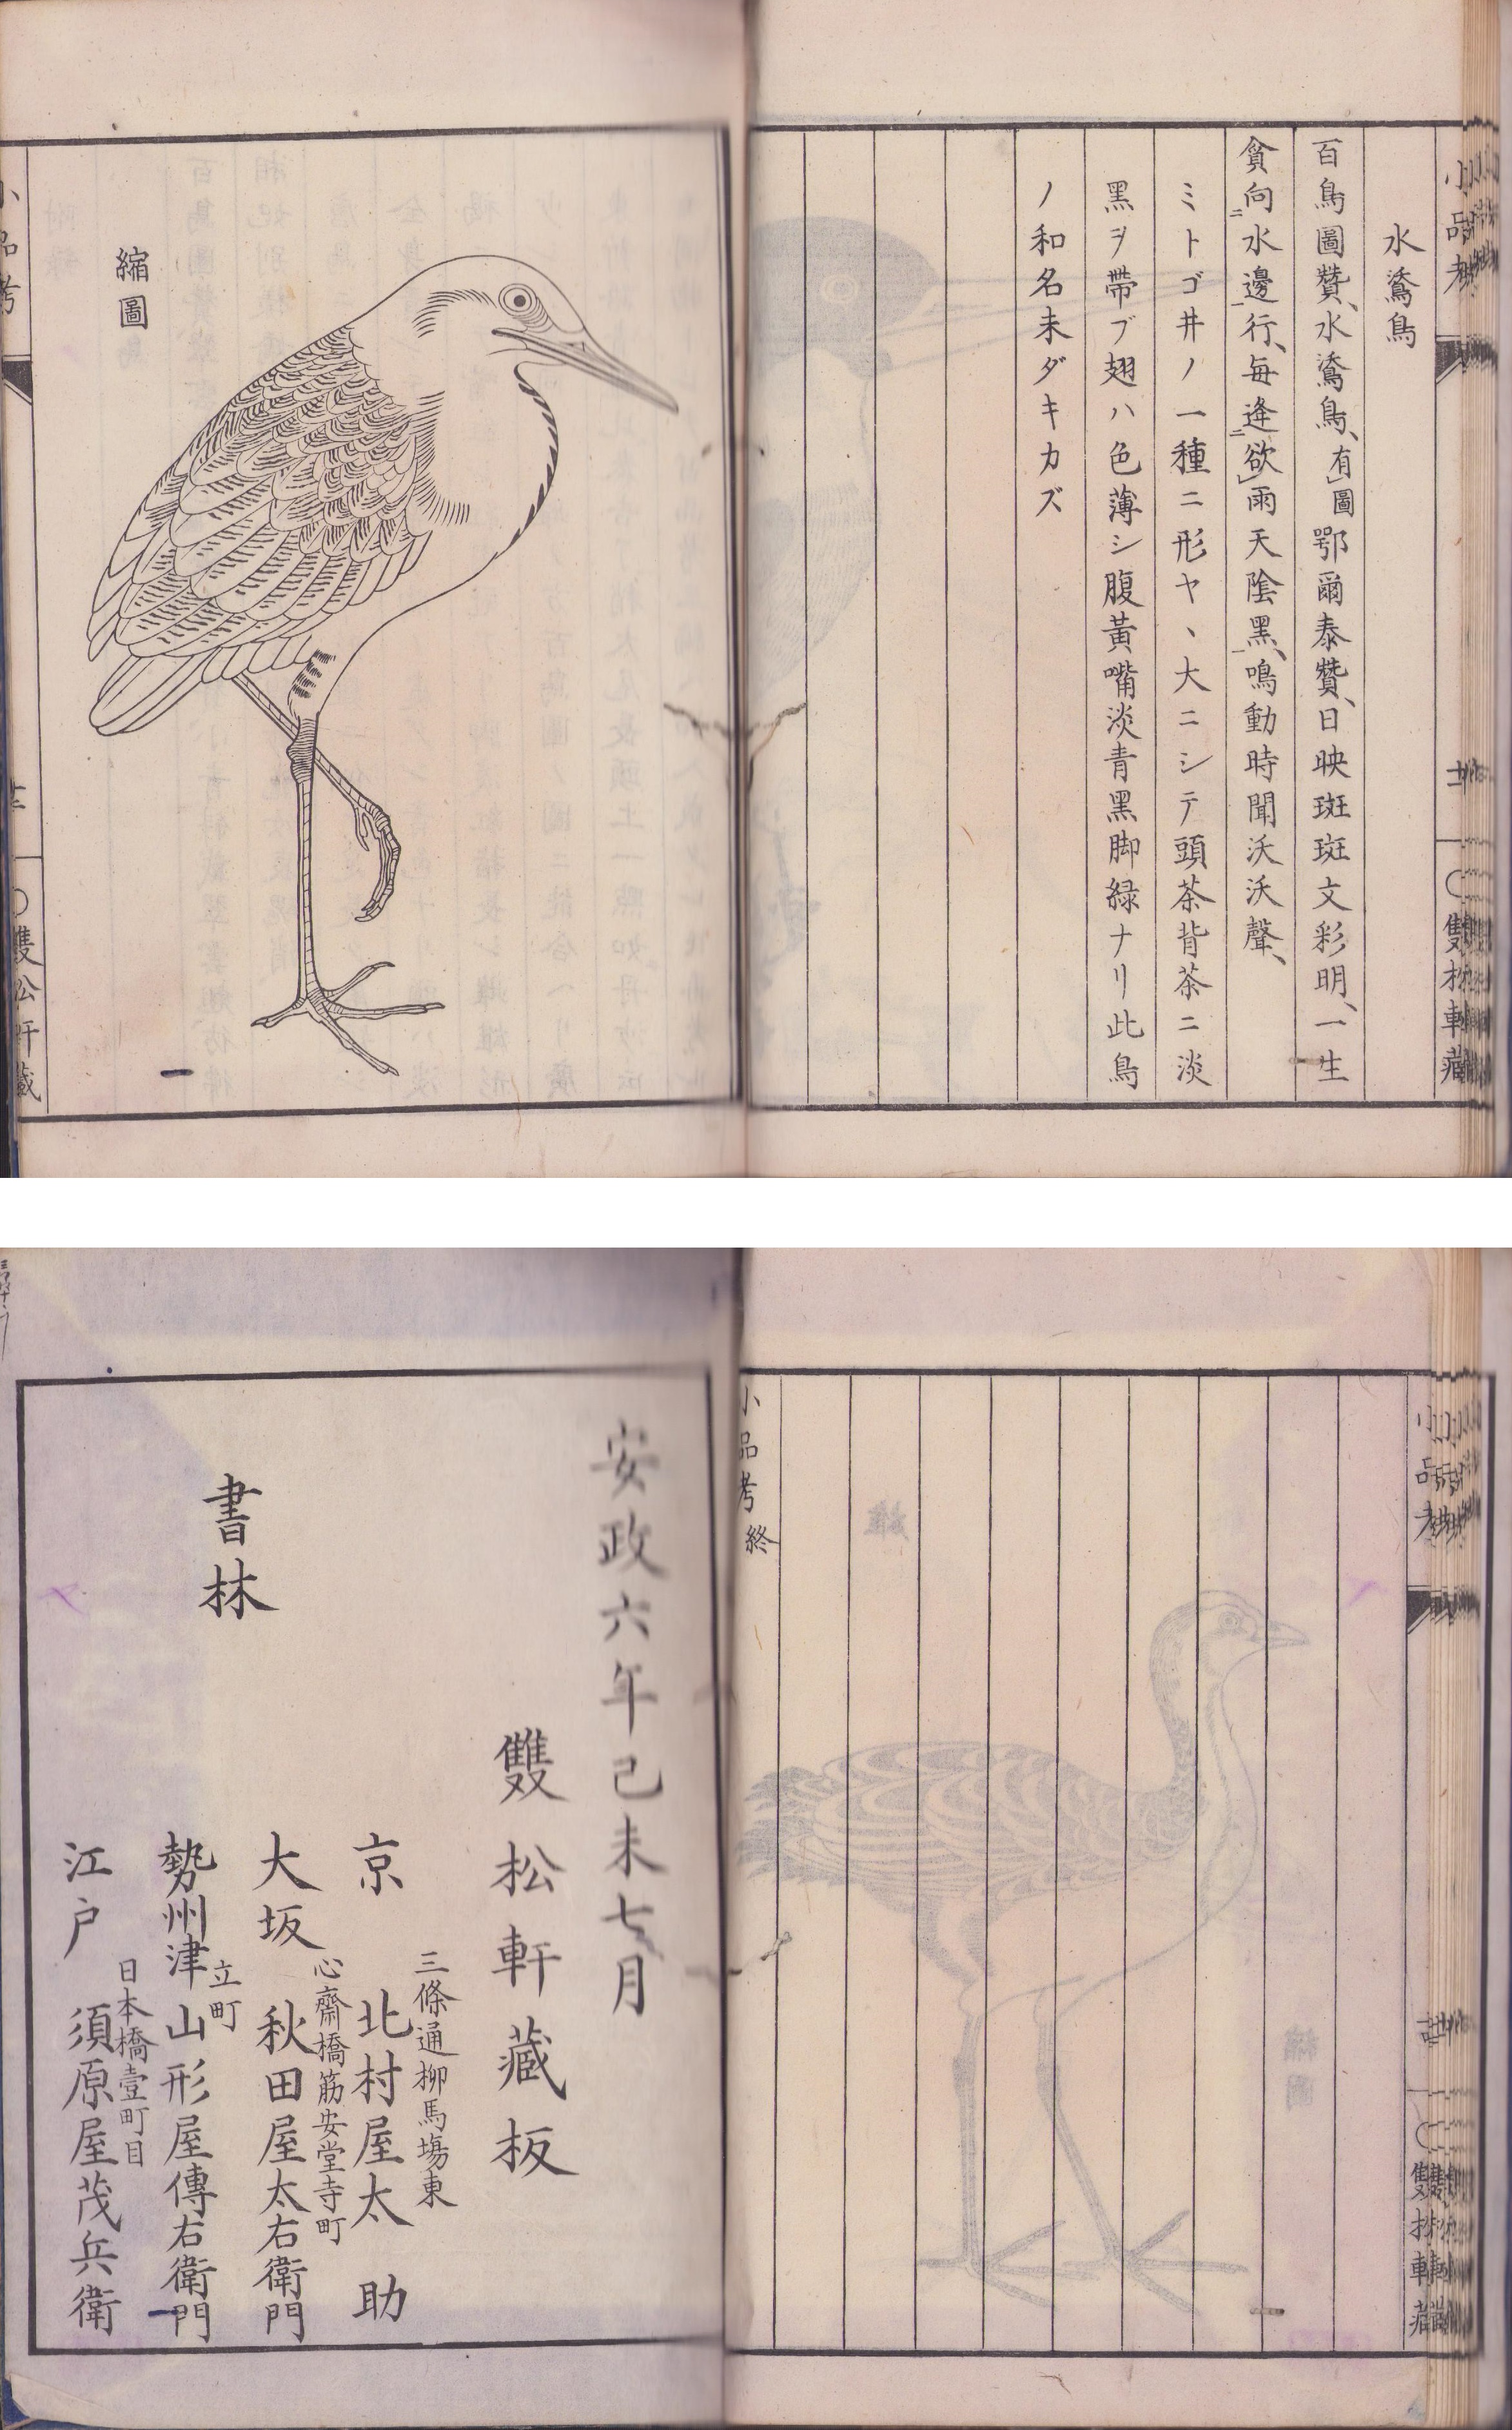 水鵁鳥
百鳥圖贊、水鵁鳥、有圖鄂爾泰贊、日映斑斑文彩明、一生
貪向水邊行、每逢欲雨天陰黑、鳴動時聞沃沃聲、
ミヽトゴ井ノ一種ニ形ヤヽ大ニシテ頭茶背茶ニ淡
黑ヲ帶ブ翅ハ色薄シ腹黃嘴淡青黑脚緑ナリ此鳥
ノ和名未ダキカズ
小品考
雙松軒藏
縮圖
小品考
雙松軒藏
小品考
雙松軒藏
小品考終
安政六年己未七月
雙松軒藏板
三條通柳馬塲東
京 北村屋太助
心齋橋筋安堂寺町
大坂 秋田屋太右衛門
立町
勢州津 山形屋傳右衛門
日本橋壹町目
江戸 須原屋茂兵衛
書林